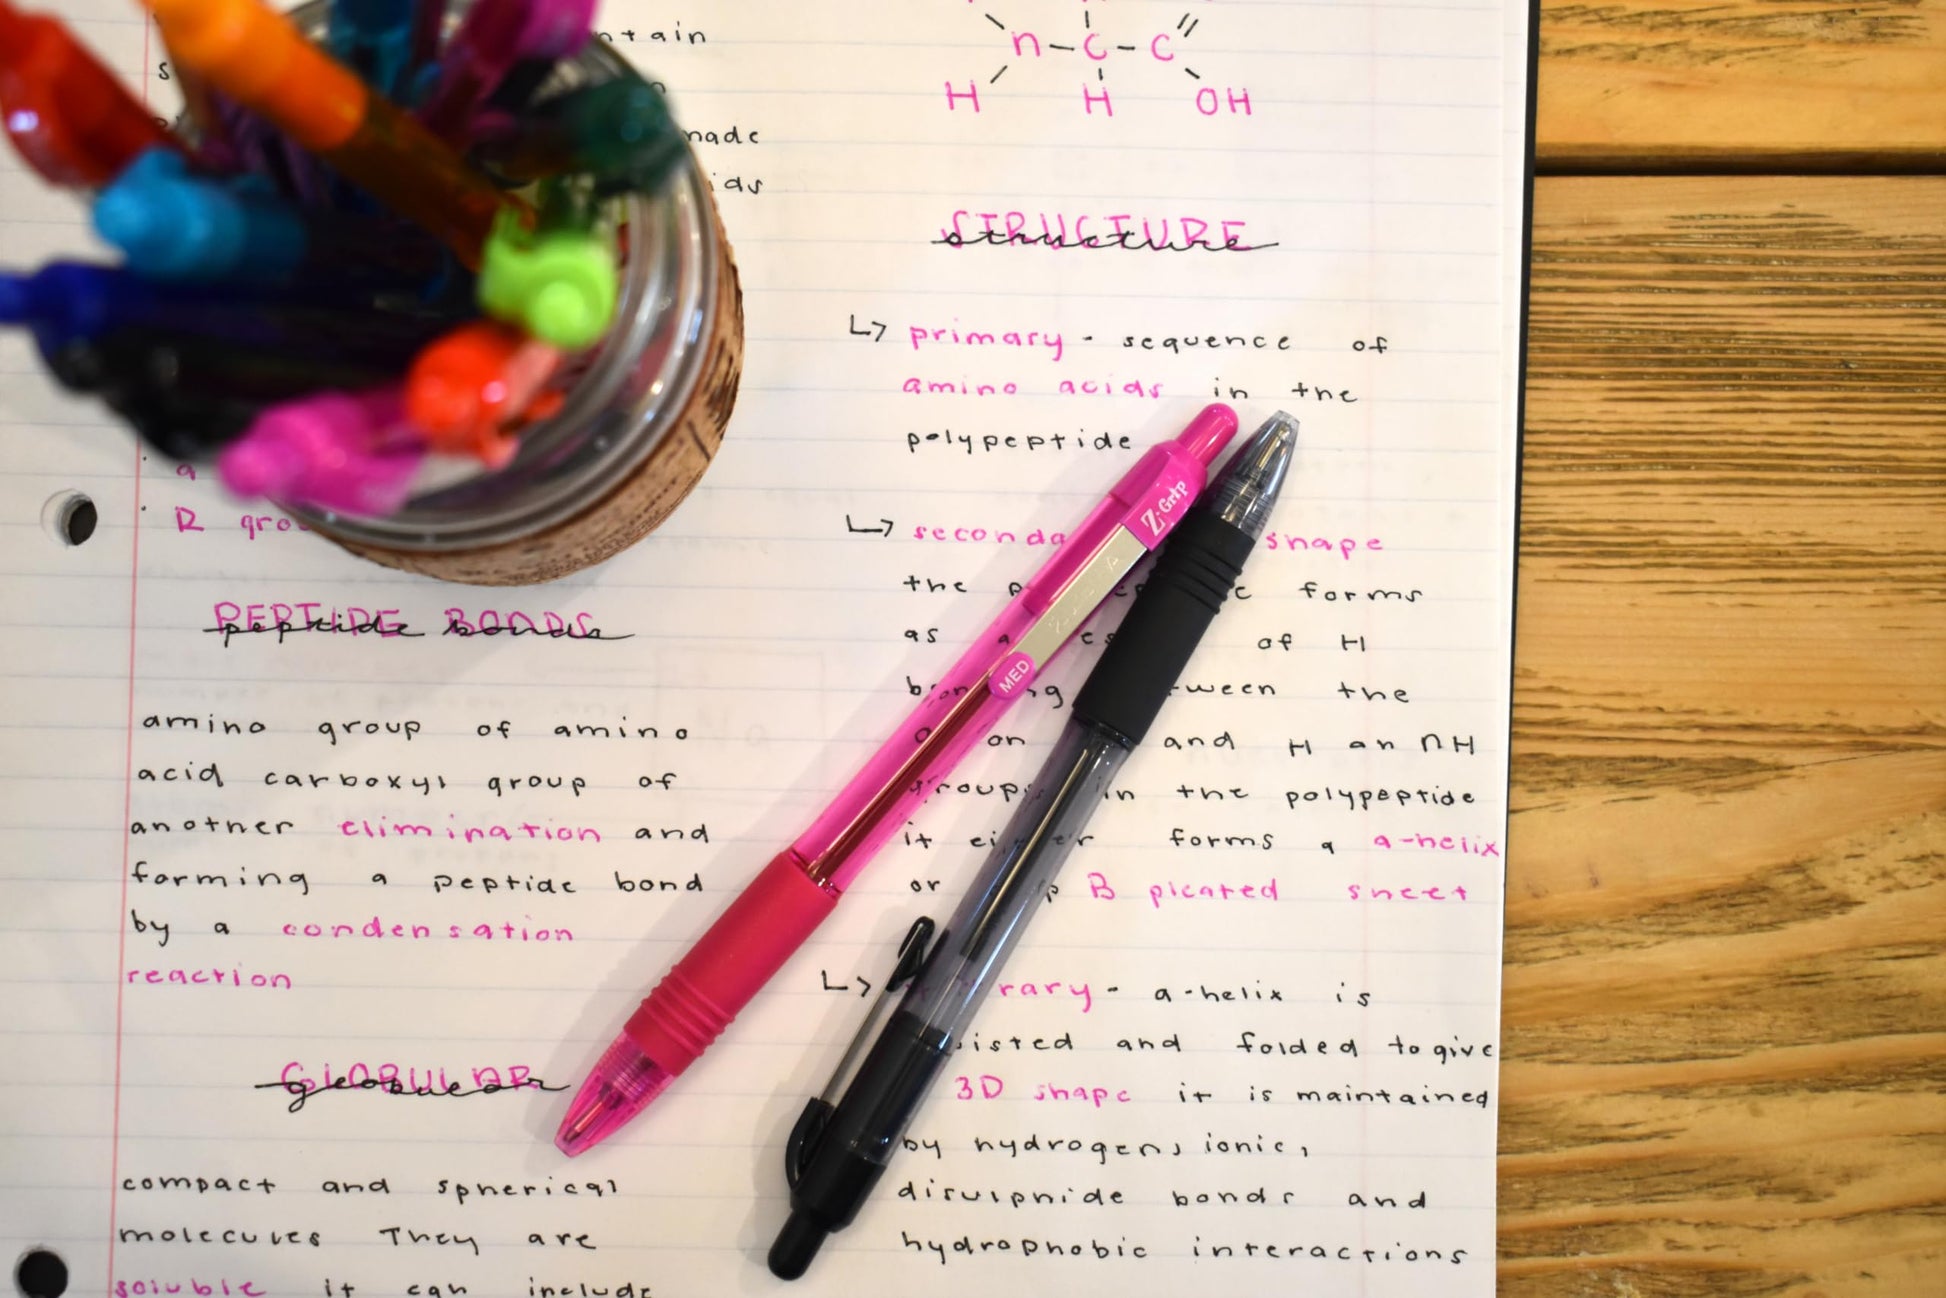 ntain
s
made
ids
n-c-c
H H OH
a
R gro
PEPTIDE BONDS
peptide bonds
amino group of amino
acid carboxyl group of
another elimination and
forming a peptide bond
by a condensation
reaction
GLOBULAR
globular
compact and spherical
molecules They are
soluble it can include
STRUCTURE
structure
↳ primary - sequence of
amino acids in the
polypeptide
↳ seconda shape
the forms
as a of H
between the
on and H an NH
groups in the polypeptide
it either forms a a-helix
or B pleated sheet
↳ rary - a-helix is
isted and folded to give
3D shape it is maintained
by hydrogen, ionic,
disulphide bonds and
hydrophobic interactions
Z-Grip
MED